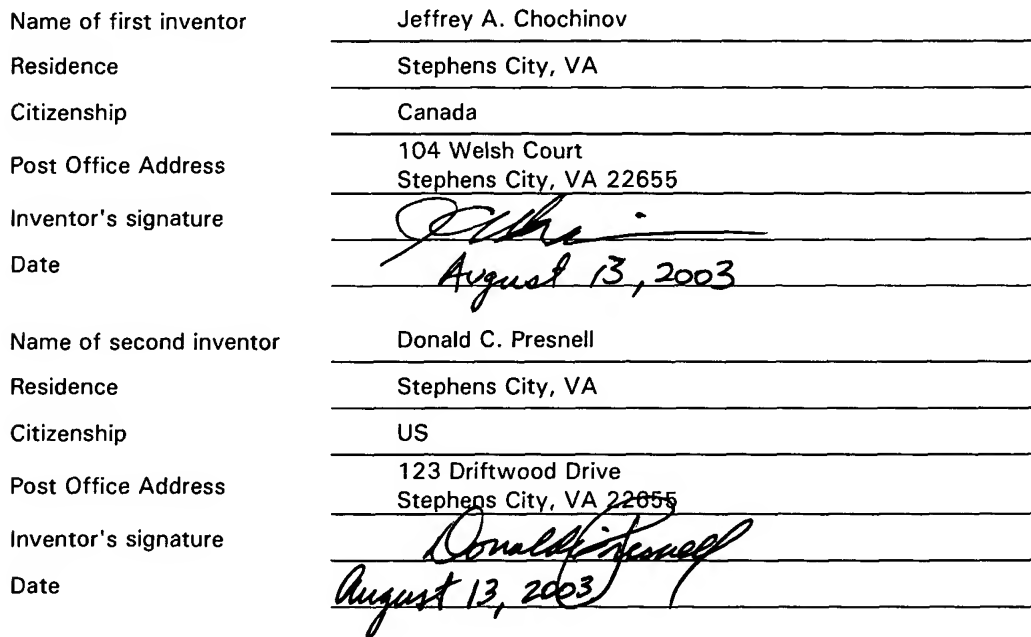 Name of first inventor Jeffrey A. Chochinov
Residence Stephens City, VA
Citizenship Canada
Post Office Address 104 Welsh Court
Stephens City, VA 22655
Inventor's signature
Date August 13, 2003
Name of second inventor Donald C. Presnell
Residence Stephens City, VA
Citizenship US
Post Office Address 123 Driftwood Drive
Stephens City, VA 22655
Inventor's signature Donald C Presnell
Date August 13, 2003